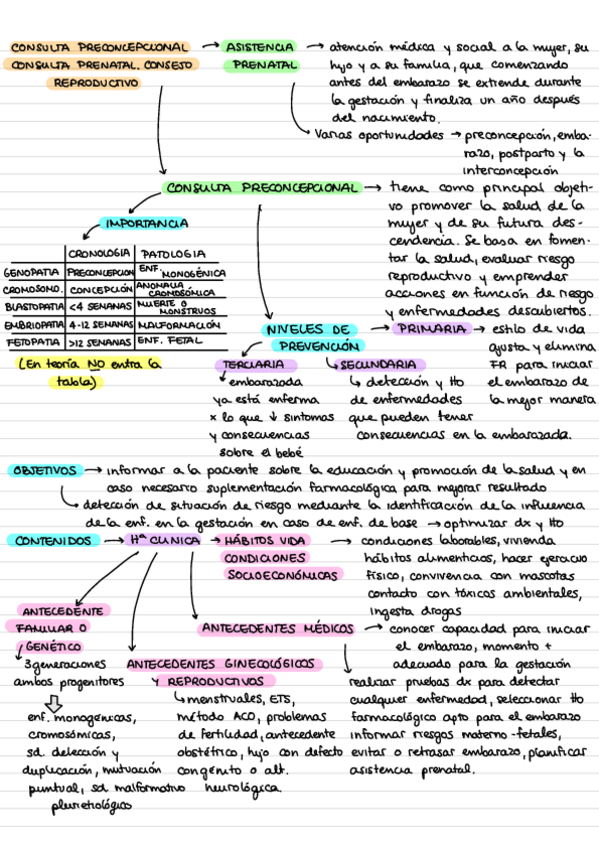 CONSULTA PRECONCEPCIONAL → ASISTENCIA → atención médica y social a la mujer, su
CONSULTA PRENATAL. CONSEJO PRENATAL hijo y a su familia, que comenzando
REPRODUCTIVO antes del embarazo se extiende durante
la gestación y finaliza un año después
del nacimiento.
Varias oportunidades → preconcepción, emba-
razo, postparto y la
interconcepción
CONSULTA PRECONCEPCIONAL → tiene como principal objeti-
vo promover la salud de la
mujer y de su futura des-
cendencia. Se basa en fomen-
tar la salud, evaluar riesgo
reproductivo y emprender
acciones en función de riesgo
y enfermedades descubiertos.
IMPORTANCIA
CRONOLOGIA PATOLOGIA
GENOPATIA PRECONCEPCION ENF. MONOGÉNICA
CROMOSOMO. CONCEPCIÓN ANOMALIA CROMOSÓMICA
BLASTOPATIA <4 SEMANAS MUERTE O MONSTRUOS
EMBRIOPATIA 4-12 SEMANAS MALFORMACIÓN
FETOPATIA >12 SEMANAS ENF. FETAL
(En teoría NO entra la
tabla)
NIVELES DE PREVENCIÓN → PRIMARIA → estilo de vida
ajusta y elimina
FR para iniciar
el embarazo de
la mejor manera
TERCIARIA
embarazada
ya está enferma
x lo que ↓ sintomas
y consecuencias
sobre el bebé
SECUNDARIA
detección y tto
de enfermedades
que pueden tener
consecuencias en la embarazada.
OBJETIVOS → informar a la paciente sobre la educación y promoción de la salud y en
caso necesario suplementación farmacológica para mejorar resultado
detección de situación de riesgo mediante la identificación de la influencia
de la enf. en la gestación en caso de enf. de base → optimizar dx y tto
CONTENIDOS → Hª CLINICA → HÁBITOS VIDA → condiciones laborables, vivienda
CONDICIONES hábitos alimenticios, hacer ejercicio
SOCIOECONÓMICAS físico, convivencia con mascotas
contacto con tóxicos ambientales,
ingesta drogas
ANTECEDENTE
FAMILIAR O
GENÉTICO
3 generaciones
ambos progenitores
enf. monogénicas,
cromosómicas,
sd. delección y
duplicación, mutación
puntual, sd malformativo
plurietiológico
ANTECEDENTES GINECOLÓGICOS
Y REPRODUCTIVOS
menstruales, ETS,
método ACO, problemas
de fertilidad, antecedente
obstétrico, hijo con defecto
congénito o alt.
neurológica.
ANTECEDENTES MÉDICOS → conocer capacidad para iniciar
el embarazo, momento +
adecuado para la gestación
realizar pruebas dx para detectar
cualquier enfermedad, seleccionar tto
farmacológico apto para el embarazo
informar riesgos materno-fetales,
evitar o retrasar embarazo, planificar
asistencia prenatal.